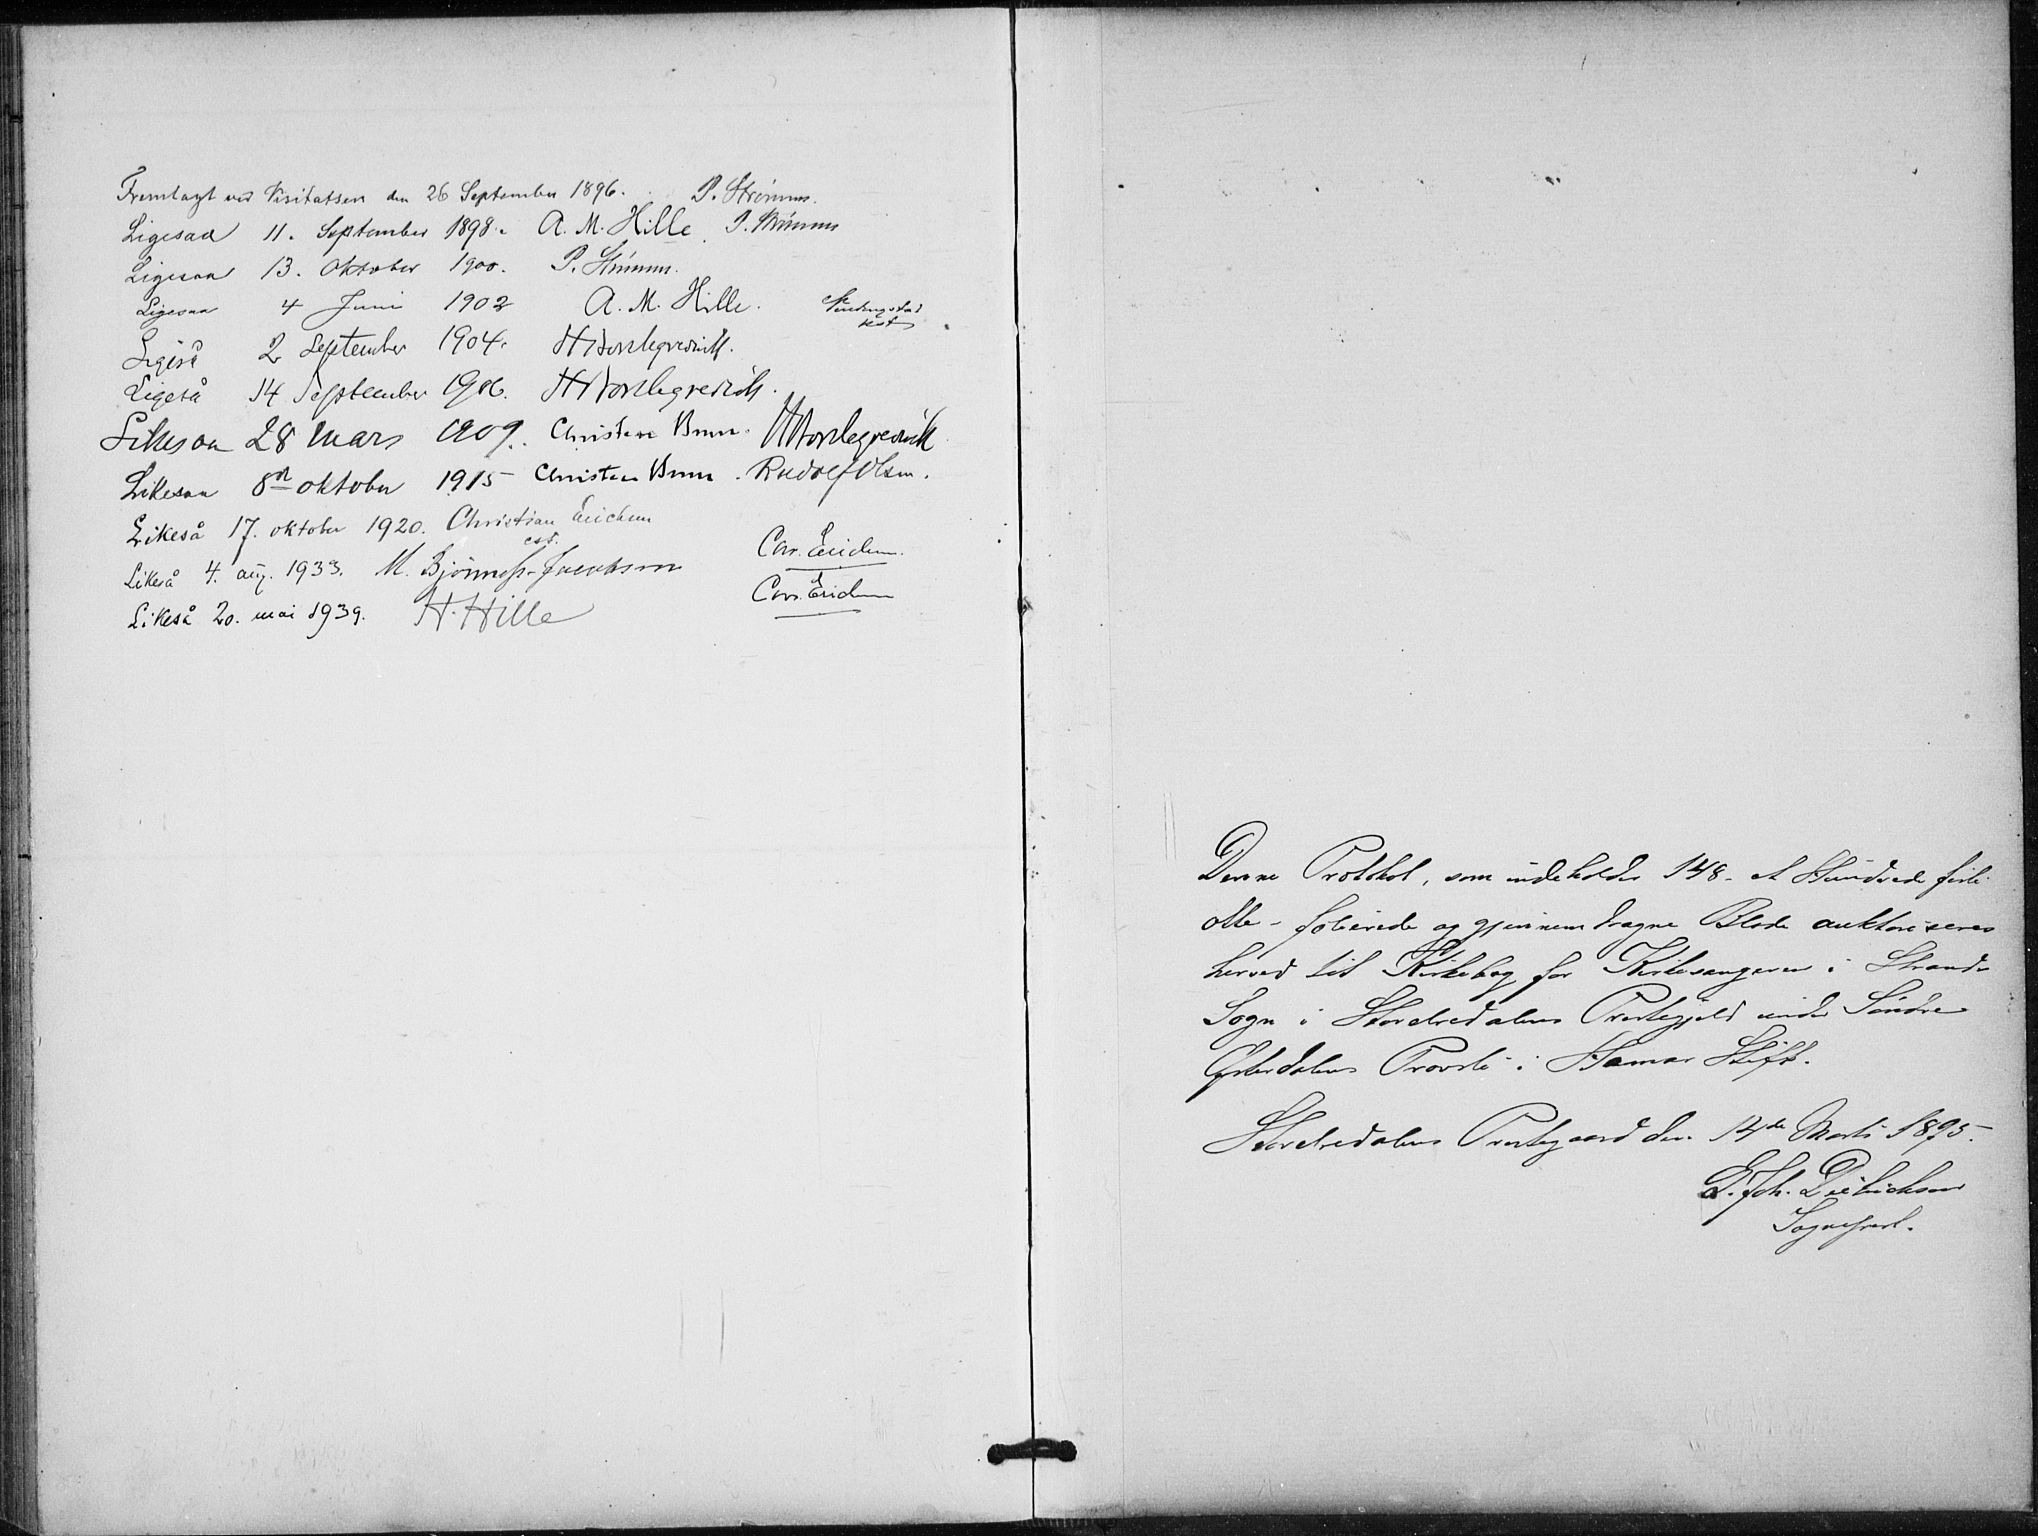 Fremlagt ved Visitatsen den 26 September 1896. P. Strømme.
Ligesaa 11. September 1898. A. M. Hille P. Strømme
Ligesaa 13. Oktober 1900. P. Strømme.
Ligesaa 4 Juni 1902 A. M. Hille.
Ligeså 2 September 1904.
Ligeså 14 September 1906.
Likesaa 28 Mars 1909. Christen Brun.
Likesaa 8de oktober 1915 Christen Brun. Rudolf Olsen.
Likeså 17. oktober 1920. Christian Erichsen
cst.
Likeså 4. aug. 1933. M. Bjønness-Jacobsen Chr. Erichsen.
Likeså 20. mai 1939. H. Hille Chr. Erichsen
Denne Protokol, som indeholder 148 - et Hundrede firti
otte - folierede og gjennemdragne Blade auktoriseres
herved til Kirkebog for Kirkesangeren i Strands
Sogn i Storelvedalens Præstegjeld under Søndre
Østerdalens Provsti i Hamar Stift.
Storelvedalens Præstegaard den 14de Marts 1895.
E. Joh. Dietrichson
Sognepræst.